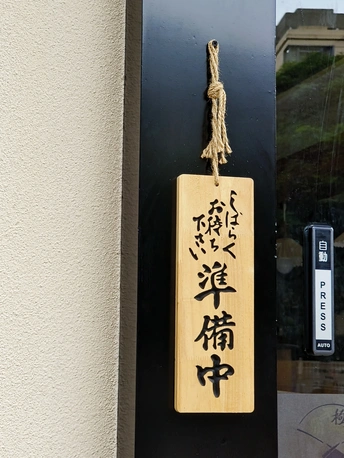 しばらく
お待ち
下さい
準備中
自動
PRESS
AUTO